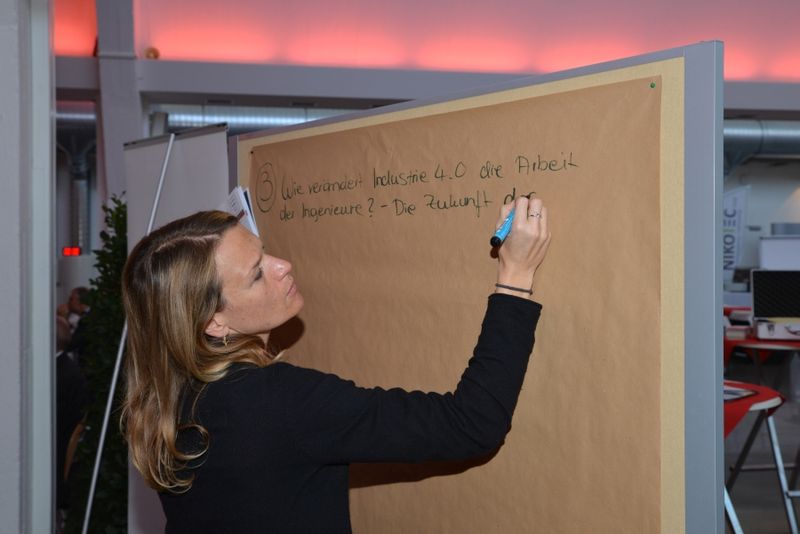 ③ Wie verändert Industrie 4.0 die Arbeit
der Ingenieure? - Die Zukunft der
NIKOTEC